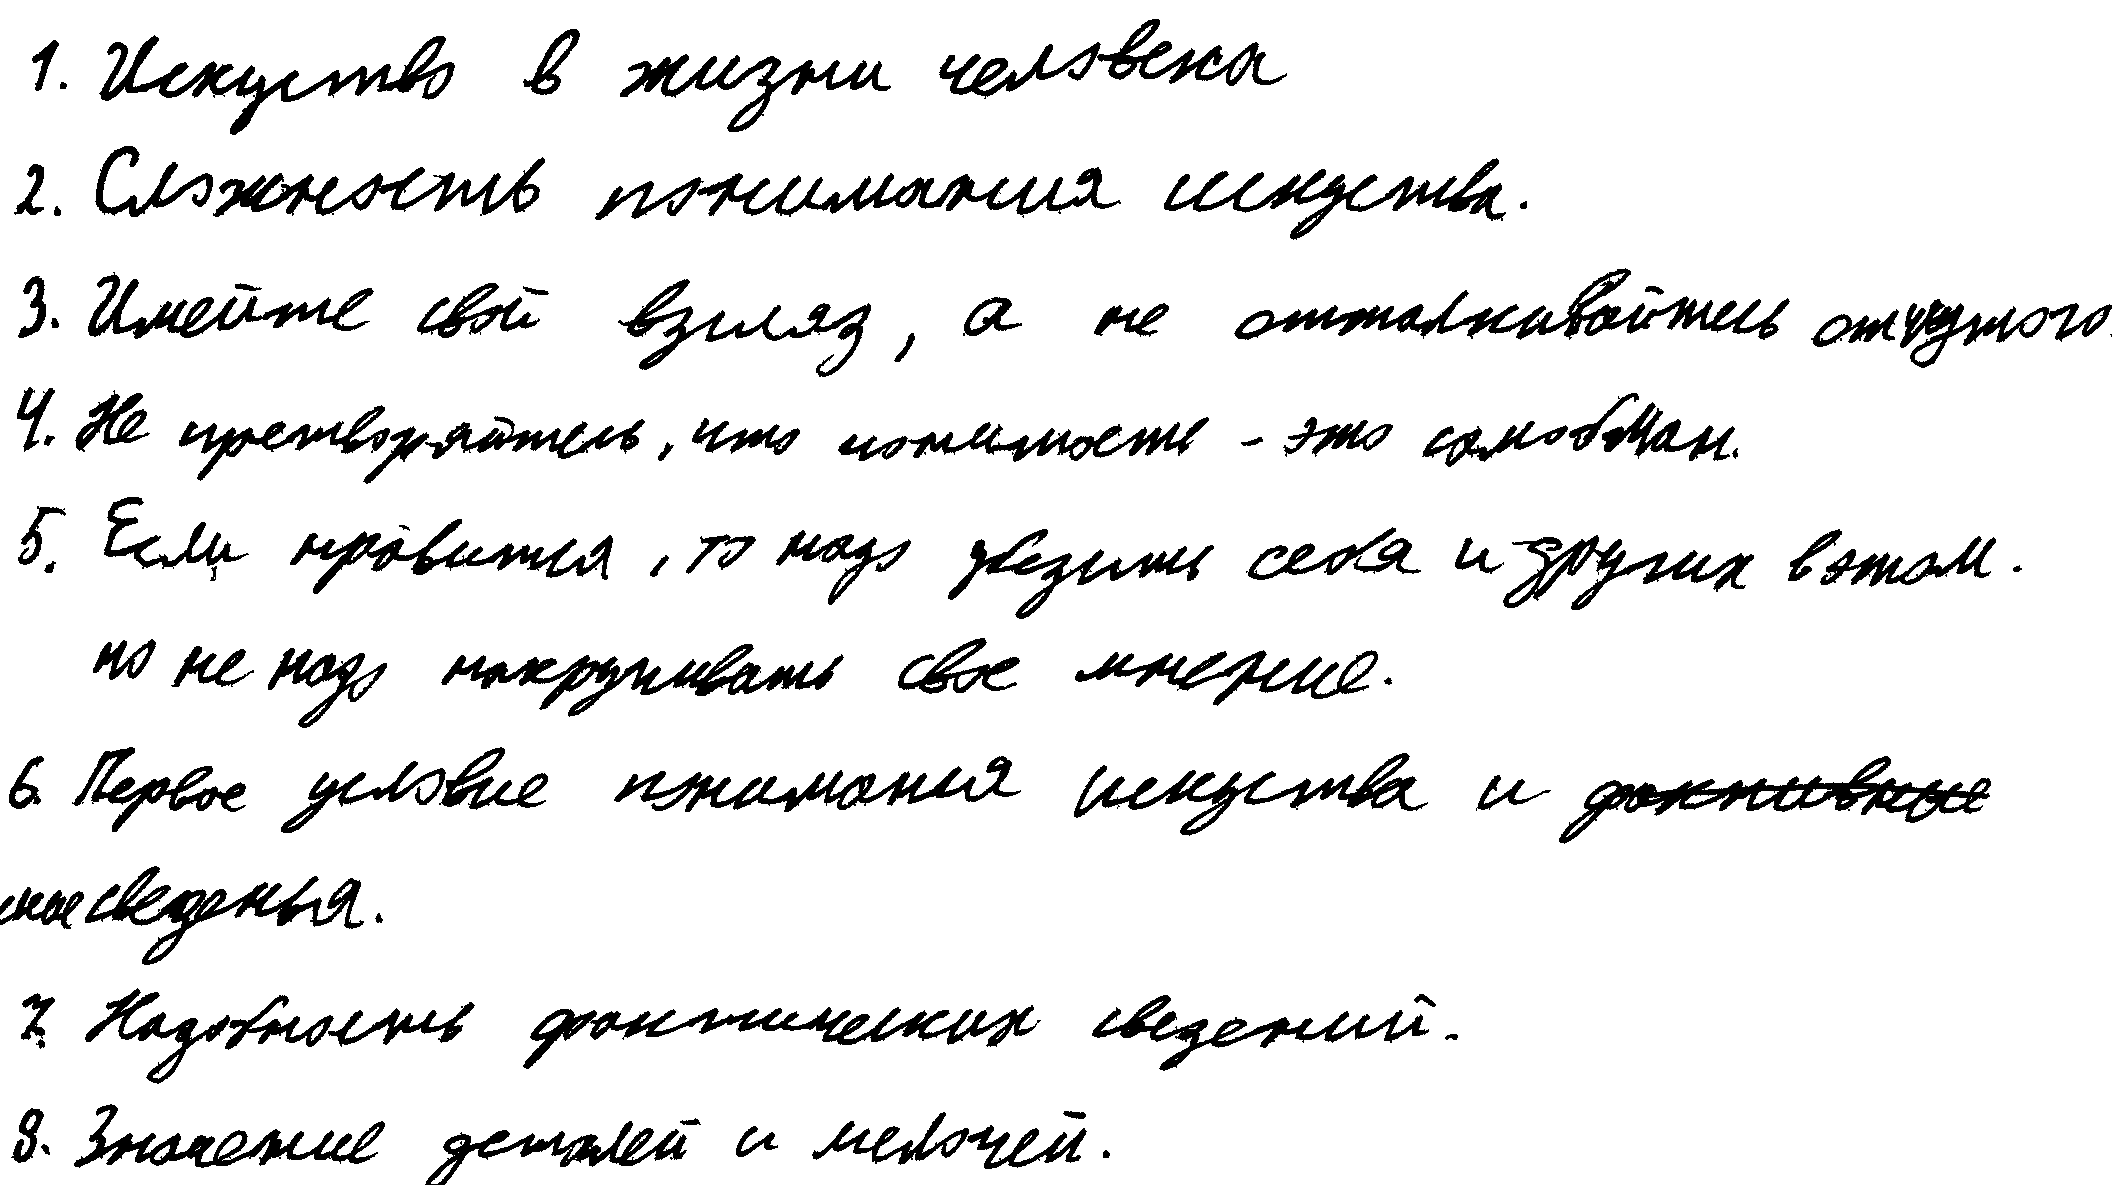 1. Искуство в жизни человека
2. Сложность понимания искуства.
3. Имейте свой взгляд, а не отталкивайтесь от чужого.
4. Не претворяйтесь, что понимаете - это самообман.
5. Если нравится, то надо убедить себя и других в этом.
но не надо накручивать свое мнение.
6. Первое условие понимания искуства и
сведенья.
7. Надобность фактических сведений.
8. Значение деталей и мелочей.